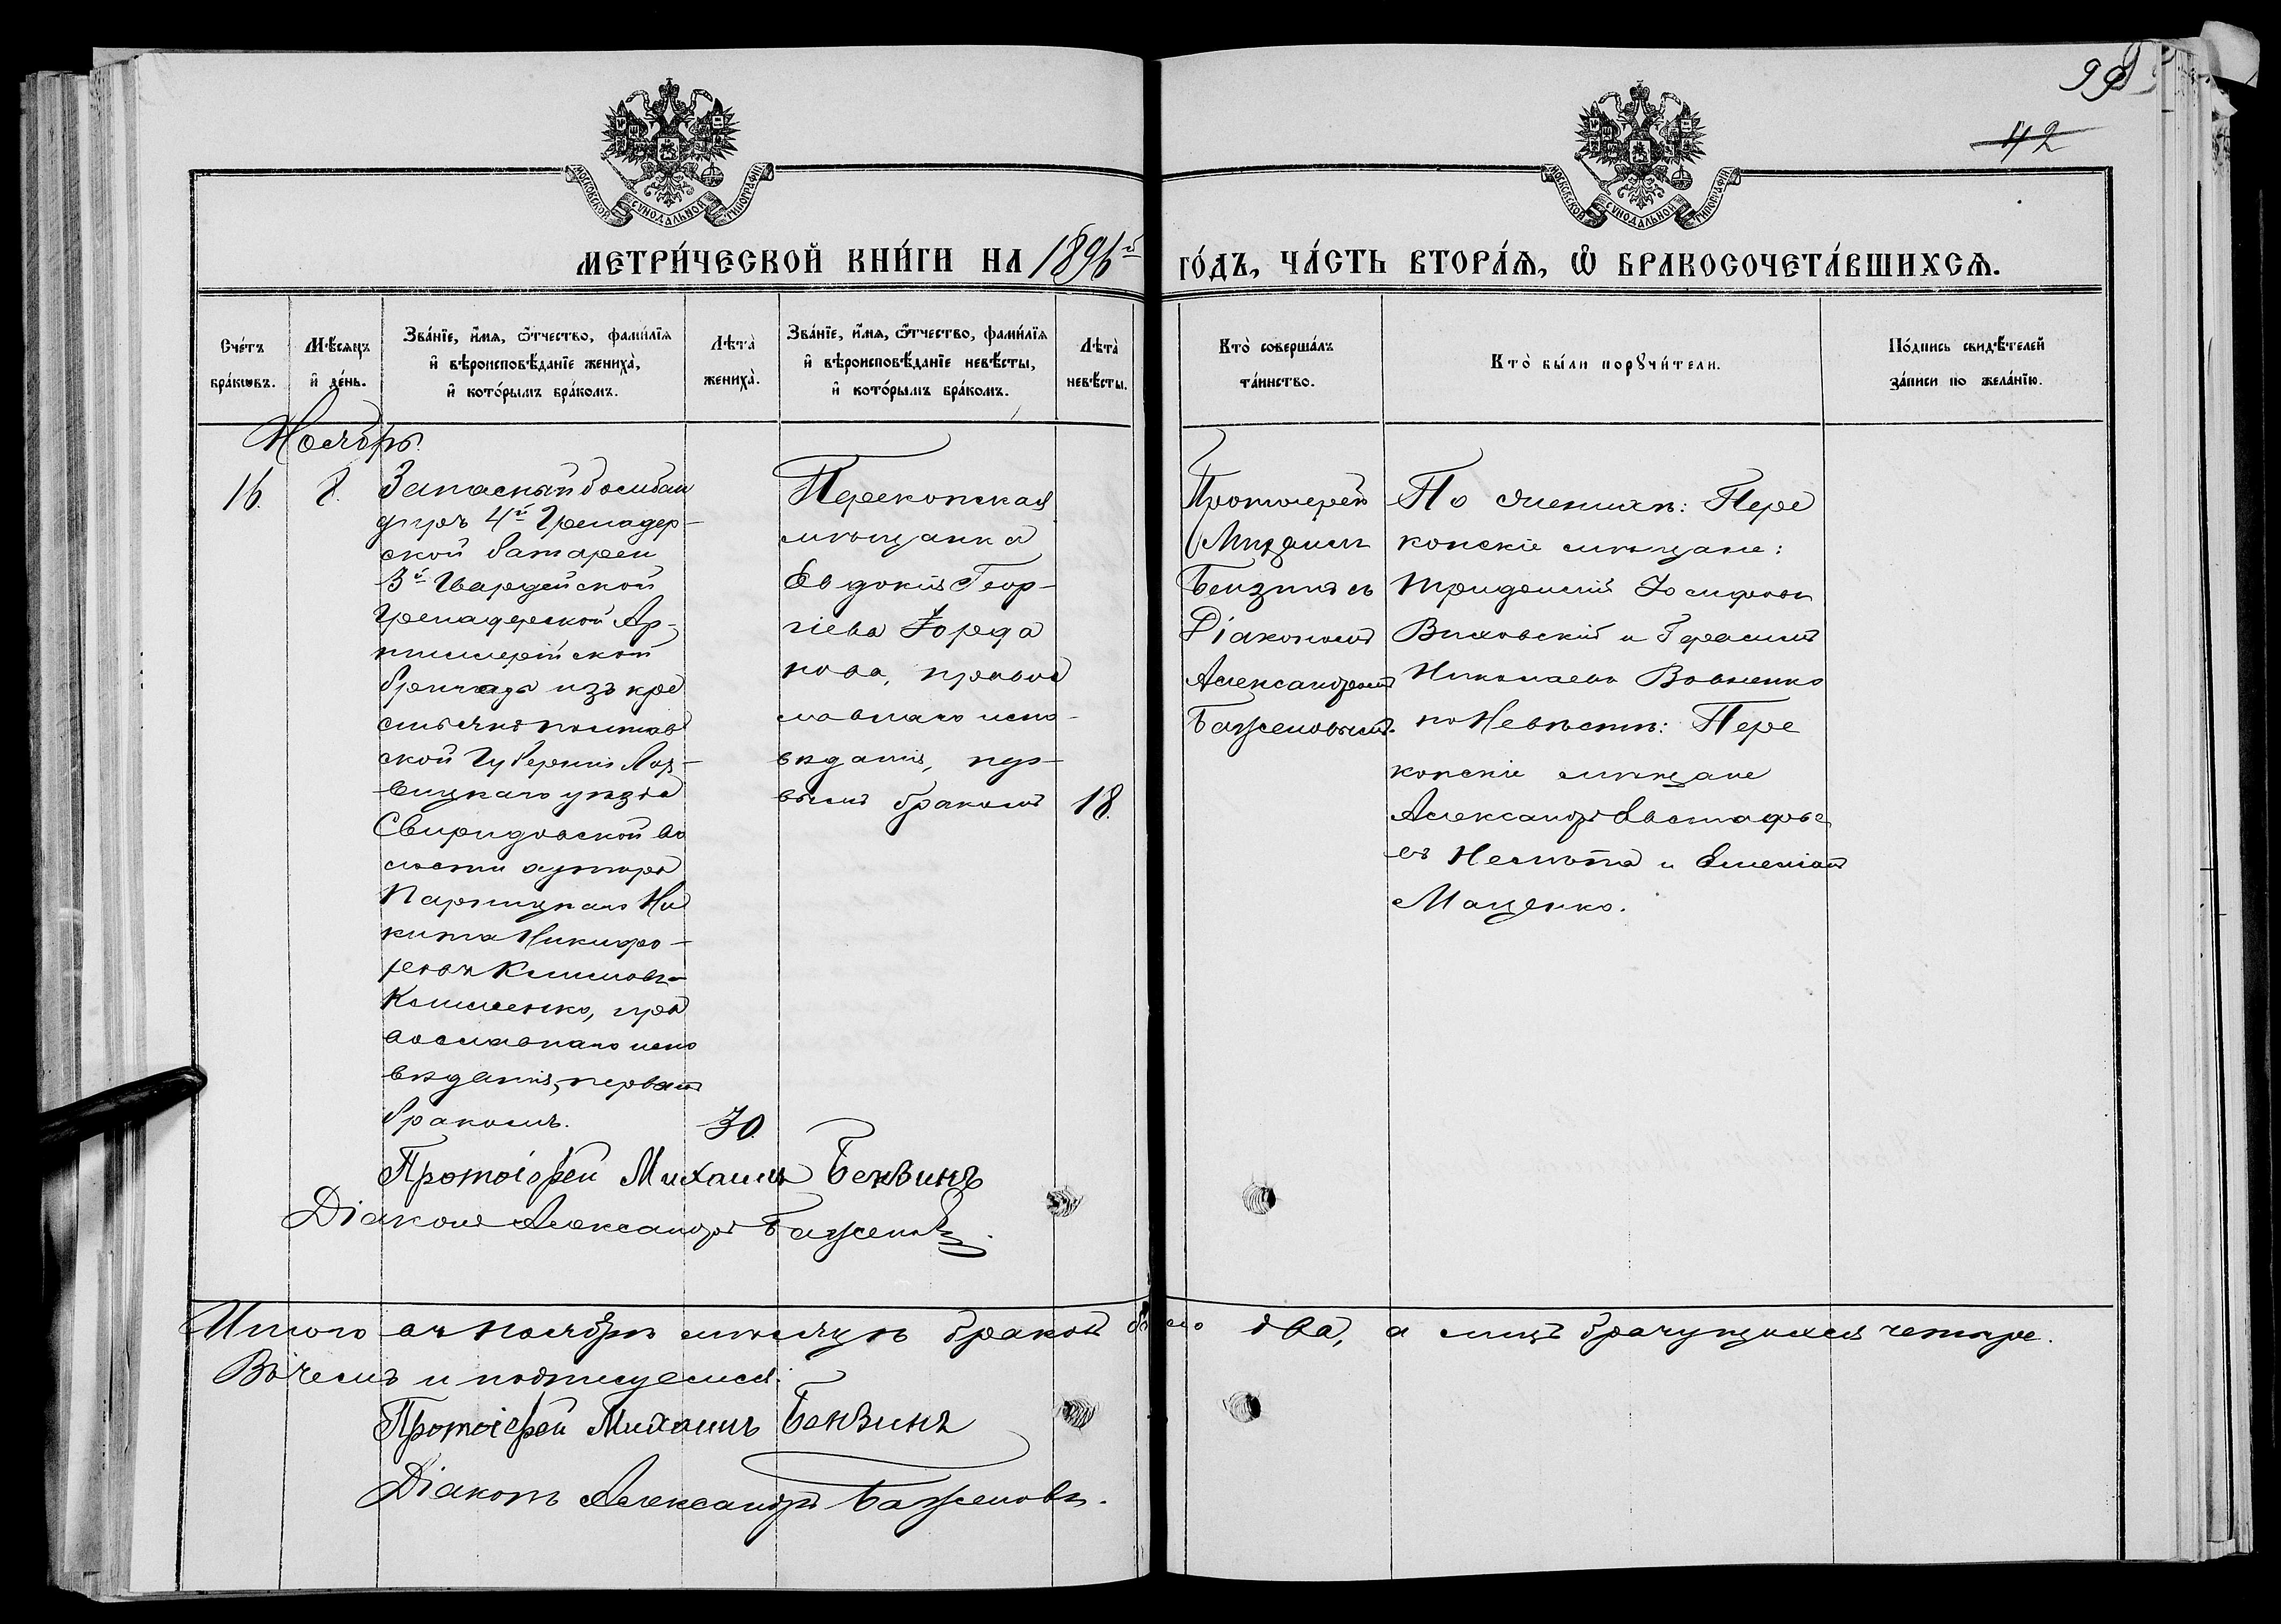 99
42
МОСКОВСКОЙ СѴНОДАЛЬНОЙ ТИПОГРАФІИ
МОСКОВСКОЙ СѴНОДАЛЬНОЙ ТИПОГРАФІИ
МЕТРИ́ЧЕСКОЙ КНИ́ГИ НА 1896й ГО́ДЪ, ЧА́СТЬ ВТОРА́Ѧ, Ѽ БРАКОСОЧЕТА́ВШИХСѦ.
Сче́тъ
бра́кѡвъ.
Мѣ́сяцъ
и҆ де́нь.
Зва́нїе, и҆́мя, ѻ҆́тчество, фами́лїя
и҆ вѣроисповѣ́данїе жениха̀,
и҆ кото́рымъ бра́комъ.
Лѣта̀
жениха̀.
Зва́нїе, и҆́мя, ѻ҆́тчество, фами́лїя
и҆ вѣроисповѣ́данїе невѣ́сты,
и҆ кото́рымъ бра́комъ.
Лѣта̀
невѣ́сты.
Кто̀ соверша́лъ
та́инство.
Кто̀ бы́ли порꙋчи́тели.
По́дпись свидѣ́телей
за́писи по жела́нїю.
Ноябрь.
16.
8.
Запасный бомбан
диръ 4й Гренадер-
ской батареи
3й Гвардейской
Гренадерской Ар-
тиллерійской
бригады изъ кре
стьянъ Полтав
ской Губерніи Лох-
вицкаго уѣзда
Свиридовской во
лости хутора
Ни
кита Никифо-
ровъ Климовъ-
Клименко, пра
вославнаго испо
вѣданія, первымъ
бракомъ.
30.
Перекопская
мѣщанка
Евдокія Геор-
гіева Іорда
нова, право
славнаго испо-
вѣданія, пер-
вымъ бракомъ
18.
Протоіерей
Михаилъ
Бензинъ съ
Діакономъ
Александромъ
Баженовымъ.
По женихѣ: Пере
копскіе мѣщане:
Іосифовъ
и Герасимъ
Николаевъ Вовненко
по Невѣстѣ: Пере
копскіе мѣщане
Александръ Евстафье
въ и Емеліанъ
Маценко.
Протоіерей Михаилъ Бензинъ
Діаконъ Александръ Баженовъ.
Итого въ ноябрѣ мѣсяцѣ браковъ было два, а лицъ брачущихся четыре.
Въ чемъ и подписуемся:
Протоіерей Михаилъ Бензинъ
Діаконъ Александръ Баженовъ.